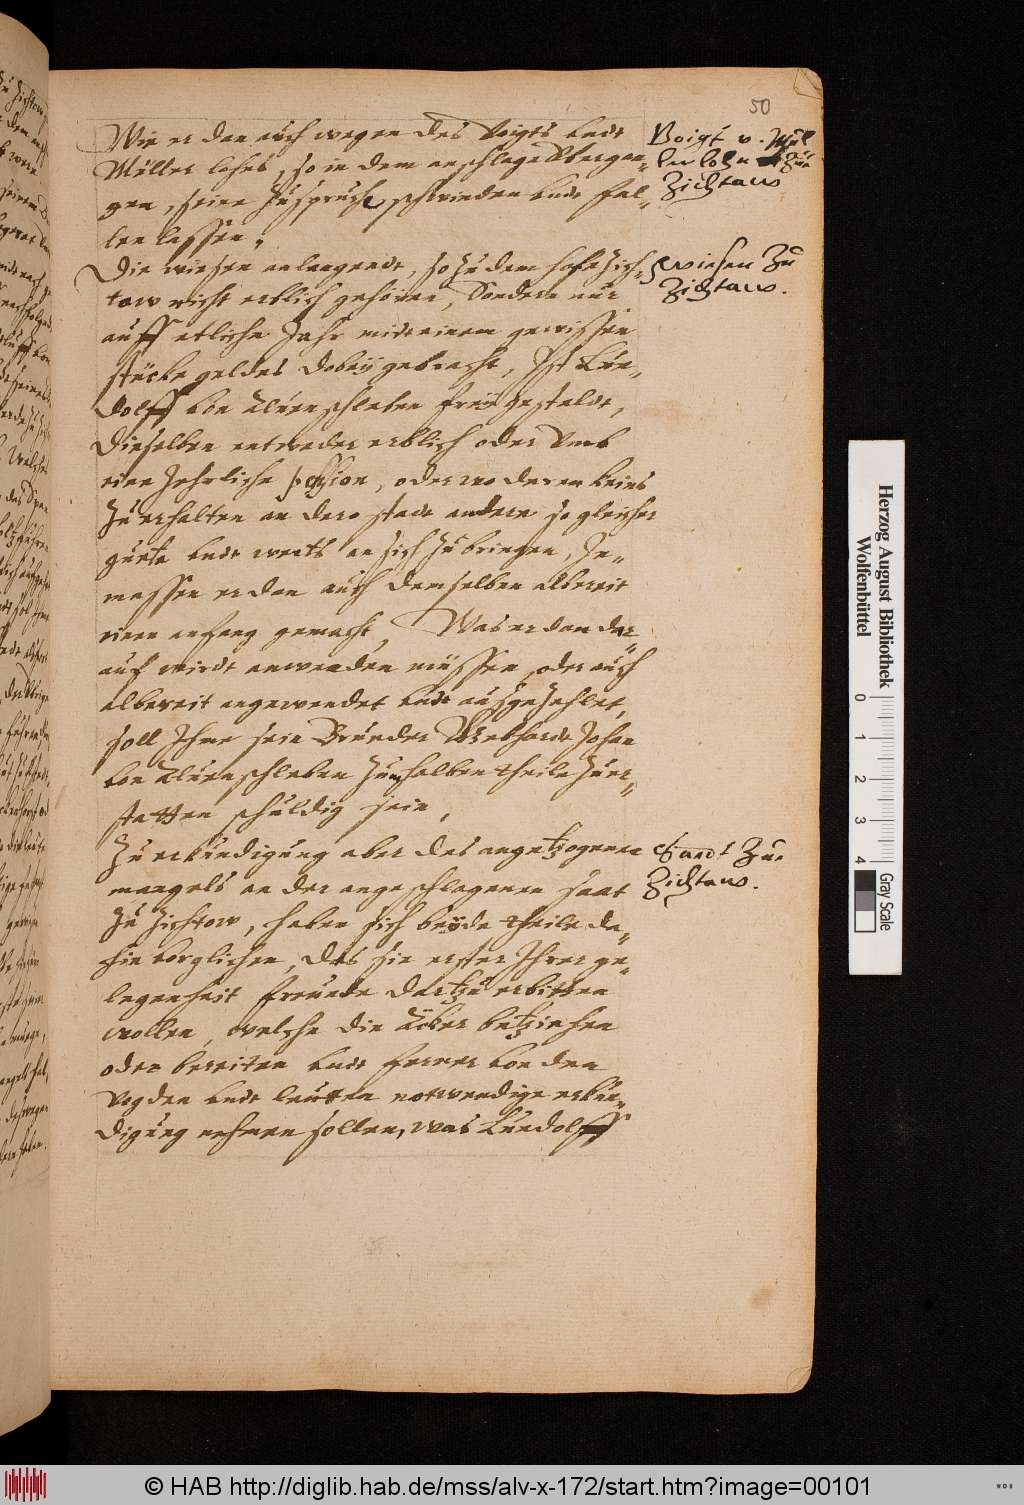 50
Wie er dan auch wegen des Voigts undt
Müllers lohns, so in dem anschlage übergan=
gen, seine Zuspruch schwinden undt fal=
len lassen.
Voigt v. Mül
ler lohn Zue
Zichtaw
Die wiesen anlangende, so zu dem hofe Zich=
tow nicht erblich gehören, Sondern nur
auff etliche Jahr mit einem gewissen
stücke geldes dobey gebracht, Ist Lüe=
dolff von Alvenschleben frey gestaldt,
dieselben entweder erblich oder umb
eine Jehrliche pension, oder wo deren keins
Zu erhalten an dero stadt andere so gleicher
guete undt werts an sich Zu bringen, In=
massen er dan auch demselben albereit
einen anfang gemacht, Was er dan dar=
auf wirdt anwenden müssen, oder auch
albereit angewendet undt ausgezahlet,
soll Ihme sein Brueder Gebhardt Johan
von Alvenschleben zum halben theile zuer=
statten schuldig sein,
wiesen Zu
Zichtaw.
Zu erkündigung aber des angetzogenen
mangels an der angeschlagenen saat
Zu Zichtow, haben sich beyde theile da=
hin vorglichen, das sie erster Ihrer ge=
legenheit freunde dartzu erbitten
wollen, welche die äcker betziehen
oder bereiten undt ferner von den
Vogden undt leutten notwendige erkün=
digung nehmen sollen, was Lüedolff
Saadt Zue
Zichtaw.
Herzog August Bibliothek
Wolfenbüttel
0 1 2 3 4
Gray Scale
© HAB http://diglib.hab.de/mss/alv-x-172/start.htm?image=00101